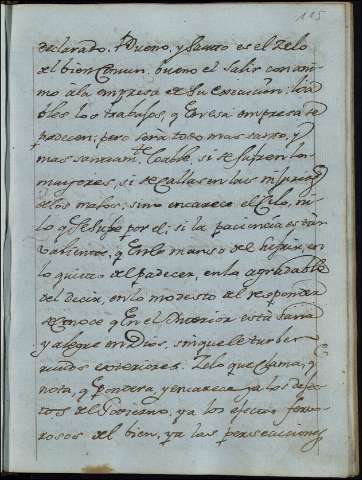 115
declarado. Bueno, y Santo es el Zelo
del bien Comun. bueno el salir con ani-
mo a la empresa de su execucion: loa-
bles los trabajos, q en esa empresa se
padecen; pero será todo mas santo, y
mas loable, si se sufren los
mayores, si se callan las
de los malos; sino encarece el Zelo, ni
lo q se sufre por el; si la paciencia es tan
valiente, q en lo manso del en
lo quieto del padecer, en lo agradable
del decir, en lo modesto del responder
se conoce q en el Interior está
y alegre en Dios, sin que le turben
ruidos exteriores. Zelo que clama, q
nota, q pondera, y encarece ya los defec-
tos del ya los efectos fervo-
rosos del bien, ya las persecuciones